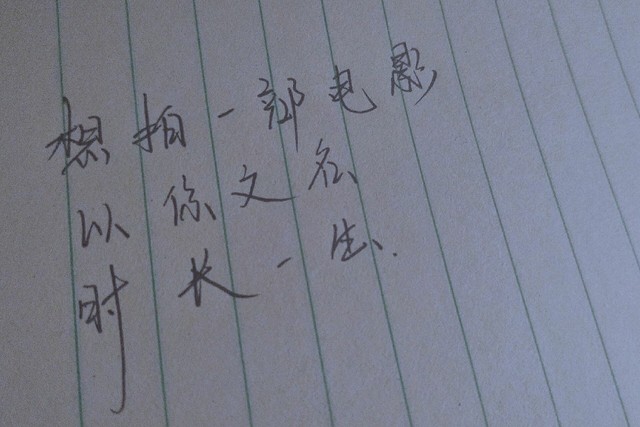 想拍一部电影
以你文名
时长一生.